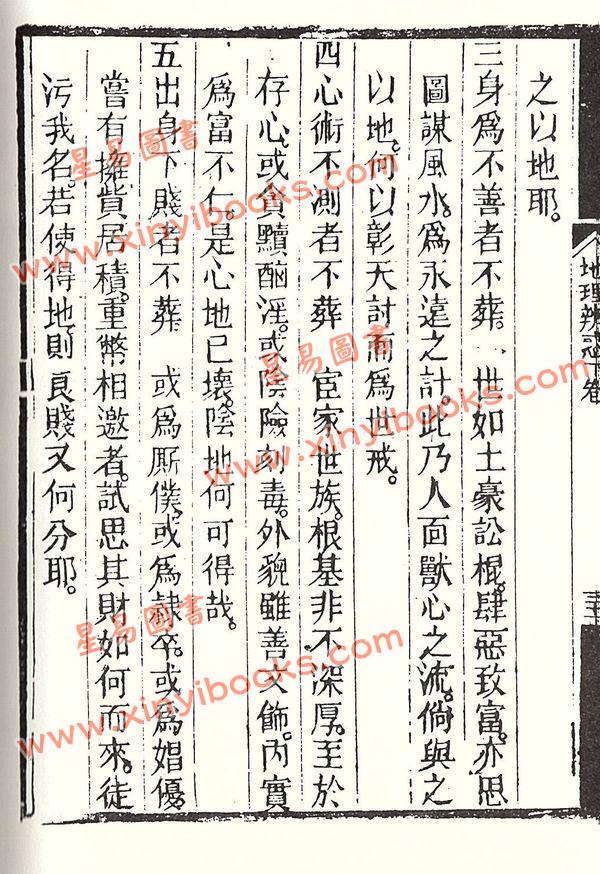 之以地耶。
三身爲不善者不葬　世如土豪訟棍。肆惡致富。亦思
圖謀風水。爲永遠之計。此乃人面獸心之流。倘與之
以地。何以彰天討而爲世戒。
四心術不測者不葬　宦家世族。根基非不深厚。至於
存心。或貪黷酗淫。或陰險刻毒。外貌雖善文飾。內實
爲富不仁。是心地已壞。陰地何可得哉。
五出身下賤者不葬　或爲厮僕。或爲隸卒。或爲娼優。
嘗有擁貲居積。重幣相邀者。試思其財如何而來。徒
污我名。若使得地。則良賤又何分耶。
地理辨惑 下卷
星易圖書
www.xinyibooks.com
星易圖書
www.xinyibooks.com
星易圖書
www.xinyibooks.com
星易圖書
www.xinyibooks.com